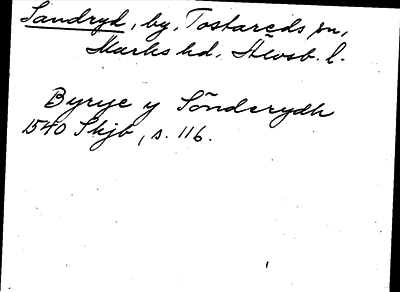 Sandryd, by, Tostareds sn,
Marks hd. Älvsb. l.
Byrye y Sōnderydh
1540 Skjb, s. 116.